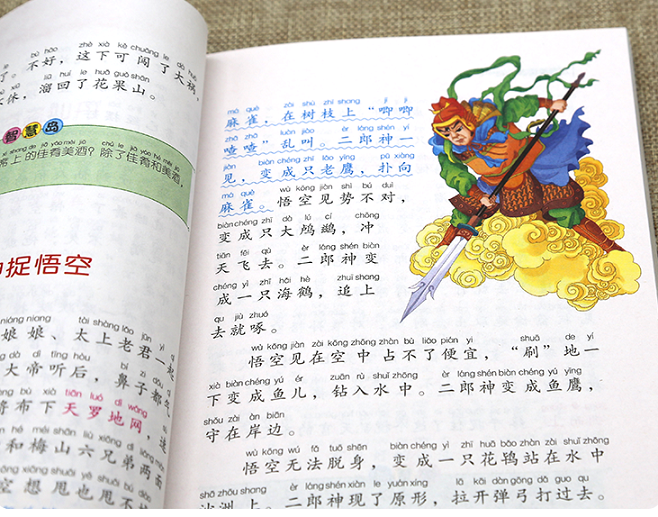 bù hǎo zhè xià kě chuǎng le dà
了。不好，这下可闯了大祸，
liū huí le huā guǒ shān
溜回了花果山。
智慧岛
上的佳肴美酒？除了佳肴和美酒，
捉悟空
niáng niang tài shàng lǎo jūn yì
娘娘、太上老君一起
dà dì tīng hòu bí zi dōu
大帝听后，鼻子都气
bù xià tiān luó dì wǎng
布下天罗地网，
hé méi shān liù xiōng dì liǎng
和梅山六兄弟两面
空想甩也甩不
má què zài shù zhī shang jī jī
麻雀，在树枝上“唧唧
zhā zhā luàn jiào èr láng shén yí
喳喳”乱叫。二郎神一
jiàn biàn chéng zhī lǎo yīng pū xiàng
见，变成只老鹰，扑向
má què wù kōng jiàn shì bú duì
麻雀。悟空见势不对，
biàn chéng zhī dà lú cí chōng
变成只大鸬鹚，冲
tiān fēi qù èr láng shén biàn
天飞去。二郎神变
chéng yì zhī hǎi hè zhuī shang
成一只海鹤，追上
qu jiù zhuó
去就啄。
wù kōng jiàn zài kōng zhōng zhàn bù liǎo pián yi shuā de yí
悟空见在空中占不了便宜，“刷”地一
xià biàn chéng yú ér zuān rù shuǐ zhōng èr láng shén biàn chéng yú yīng
下变成鱼儿，钻入水中。二郎神变成鱼鹰，
shǒu zài àn biān
守在岸边。
wù kōng wú fǎ tuō shēn biàn chéng yì zhī huā bǎo zhàn zài shuǐ zhōng
悟空无法脱身，变成一只花鸨站在水中
shā zhōu shang èr láng shén xiàn le yuán xíng lā kāi dàn gōng dǎ guo qu
沙洲上。二郎神现了原形，拉开弹弓打过去。